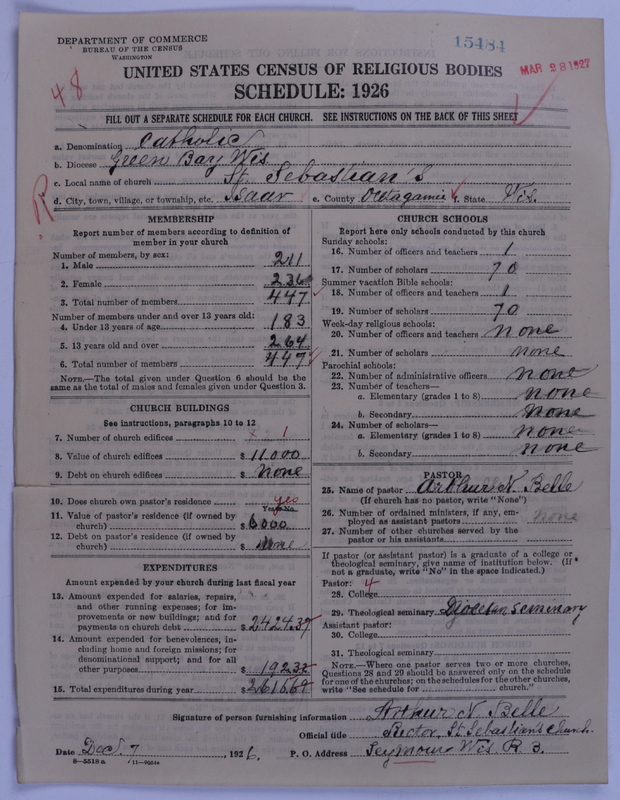 DEPARTMENT OF COMMERCE
BUREAU OF THE CENSUS
WASHINGTON
15484
MAR 28 1927
48
UNITED STATES CENSUS OF RELIGIOUS BODIES
SCHEDULE: 1926
FILL OUT A SEPARATE SCHEDULE FOR EACH CHURCH. SEE INSTRUCTIONS ON THE BACK OF THIS SHEET
a. Denomination Catholic
b. Diocese Green Bay Wis
c. Local name of church St. Sebastian's
d. City, town, village, or township, etc. Isaar e. County Outagamie f. State Wis.
R
MEMBERSHIP
Report number of members according to definition of member in your church
Number of members, by sex:
1. Male 211
2. Female 236
3. Total number of members 447
Number of members under and over 13 years old:
4. Under 13 years of age 183
5. 13 years old and over 264
6. Total number of members 447
NOTE.—The total given under Question 6 should be the
same as the total of males and females given under Question 3.
CHURCH BUILDINGS
See instructions, paragraphs 10 to 12
7. Number of church edifices 1
8. Value of church edifices $ 11000
9. Debt on church edifices $ None
10. Does church own pastor's residence yes
Yes or No
11. Value of pastor's residence (if owned by
church) $ 6000
12. Debt on pastor's residence (if owned by
church) $ None
EXPENDITURES
Amount expended by your church during last fiscal year
13. Amount expended for salaries, repairs,
and other running expenses; for im-
provements or new buildings; and for
payments on church debt $ 2424.37
14. Amount expended for benevolences, in-
cluding home and foreign missions; for
denominational support; and for all
other purposes $ 192.32
15. Total expenditures during year $ 2616.69
CHURCH SCHOOLS
Report here only schools conducted by this church
Sunday schools:
16. Number of officers and teachers 1
17. Number of scholars 70
Summer vacation Bible schools:
18. Number of officers and teachers 1
19. Number of scholars 70
Week-day religious schools:
20. Number of officers and teachers none
21. Number of scholars none
Parochial schools:
22. Number of administrative officers none
23. Number of teachers—
a. Elementary (grades 1 to 8) none
b. Secondary none
24. Number of scholars—
a. Elementary (grades 1 to 8) none
b. Secondary none
PASTOR
25. Name of pastor Arthur N. Belle
(If church has no pastor, write "None")
26. Number of ordained ministers, if any, em-
ployed as assistant pastors none
27. Number of other churches served by the
pastor or his assistants
If pastor (or assistant pastor) is a graduate of a college or
theological seminary, give name of institution below. (If
not a graduate, write "No" in the space indicated.)
Pastor: 4
28. College
29. Theological seminary Diocesan Seminary
Assistant pastor:
30. College
31. Theological seminary
NOTE.—Where one pastor serves two or more churches,
Questions 28 and 29 should be answered only on the schedule
for one of the churches; on the schedules for the other churches,
write "See schedule for church."
Signature of person furnishing information Arthur N. Belle
Official title Rector, St Sebastian's Church.
Date Dec. 7, 1926. P. O. Address Seymour Wis R. 3.
8—5518a 11—9854a